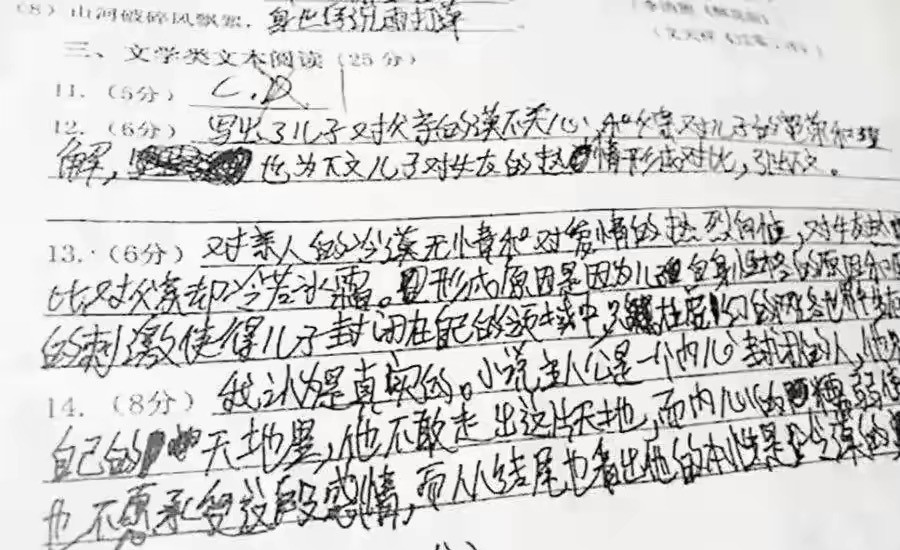 (8) 山河破碎风飘絮，身世浮沉雨打萍
三、文学类文本阅读（25分）
11.（5分） C.D
12.（6分） 写出了儿子对父亲的漠不关心，和父亲对儿子的宽容和理
解，也为下文儿子对女友的热情形成对比，引出下文。
13.（6分） 对亲人的冷漠无情和对爱情的热烈向往，对女友热
比对父亲却冷若冰霜。形成原因是因为儿自身性格的原因和
的刺激使得儿子封闭在自己的领域中，
14.（8分） 我认为是真实的。小说主人公是一个内心封闭的人，他
自己的天地里，他不敢走出这片天地，而内心的懦弱使
也不愿承受这段感情，而从结尾也看出他的本性是冷漠的